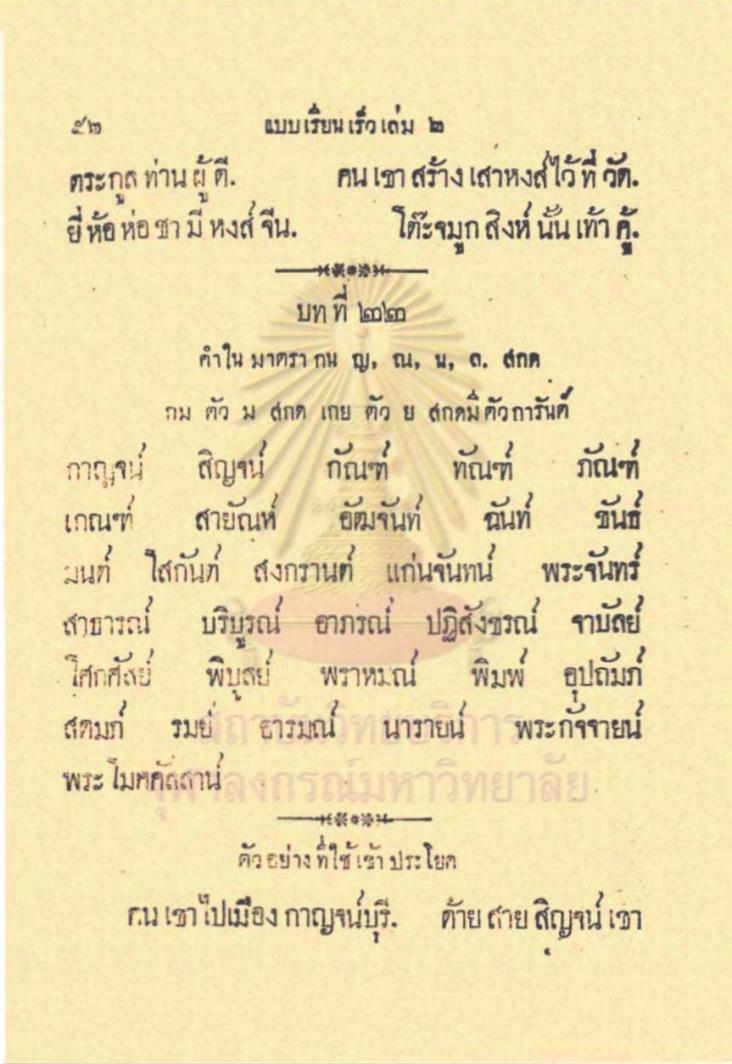 ๕๒ แบบเรียนเร็วเล่ม ๒
ตระกูล ท่าน ผู้ ดี. คน เขา สร้าง เสาหงส์ไว้ ที่ วัด.
ยี่ ห้อ ห่อ ชา มี หงส์ จีน. โต๊ะจมูก สิงห์ นั้น เท้า คู้.
บท ที่ ๒๒
คำใน มาตรา กน ญ, ณ, น, ล. สกด
กม ตัว ม สกด เกย ตัว ย สกดมีตัวการันต์
กาญจน์ สิญจน์ กัณฑ์ ทัณฑ์ ภัณฑ์
เกณฑ์ สายัณห์ อัฒจันท์ ฉันท์ ขันธ์
มนต์ ไสกันต์ สงกรานต์ แก่นจันทน์ พระจันทร์
สาธารณ์ บริบูรณ์ อาภรณ์ ปฏิสังขรณ์ จาบัลย์
โศกศัลย์ พิบูลย์ พราหมณ์ พิมพ์ อุปถัมภ์
สดมภ์ รมย์ อารมณ์ นารายน์ พระกัจจายน์
พระ โมคคัลลาน์
สถาบันวิทยบริการ
จุฬาลงกรณ์มหาวิทยาลัย
ตัว อย่าง ที่ใช้ เข้า ประโยค
คน เขา ไปเมือง กาญจน์บุรี. ด้าย สาย สิญจน์ เขา